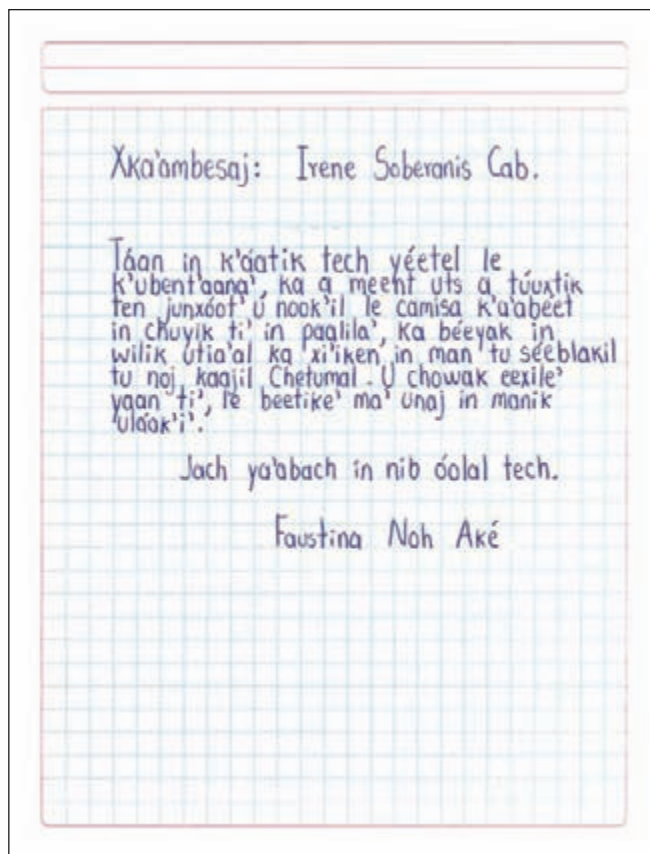 Xka'ambesaj: Irene Soberanis Cab.
Táan in k'áatik tech yéetel le
k'ubent'aana', ka a meent uts a túuxtik
ten junxóot' u nook'il le camisa k'a'abéet
in chuyik ti' in paalila', ka béeyak in
wilik utia'al ka xi'iken in man tu séeblakil
tu noj kaajil Chetumal. U chowak eexile'
yaan ti', le beetike' ma' unaj in manik
uláak'i'.
Jach ya'abach in nib óolal tech.
Faustina Noh Aké